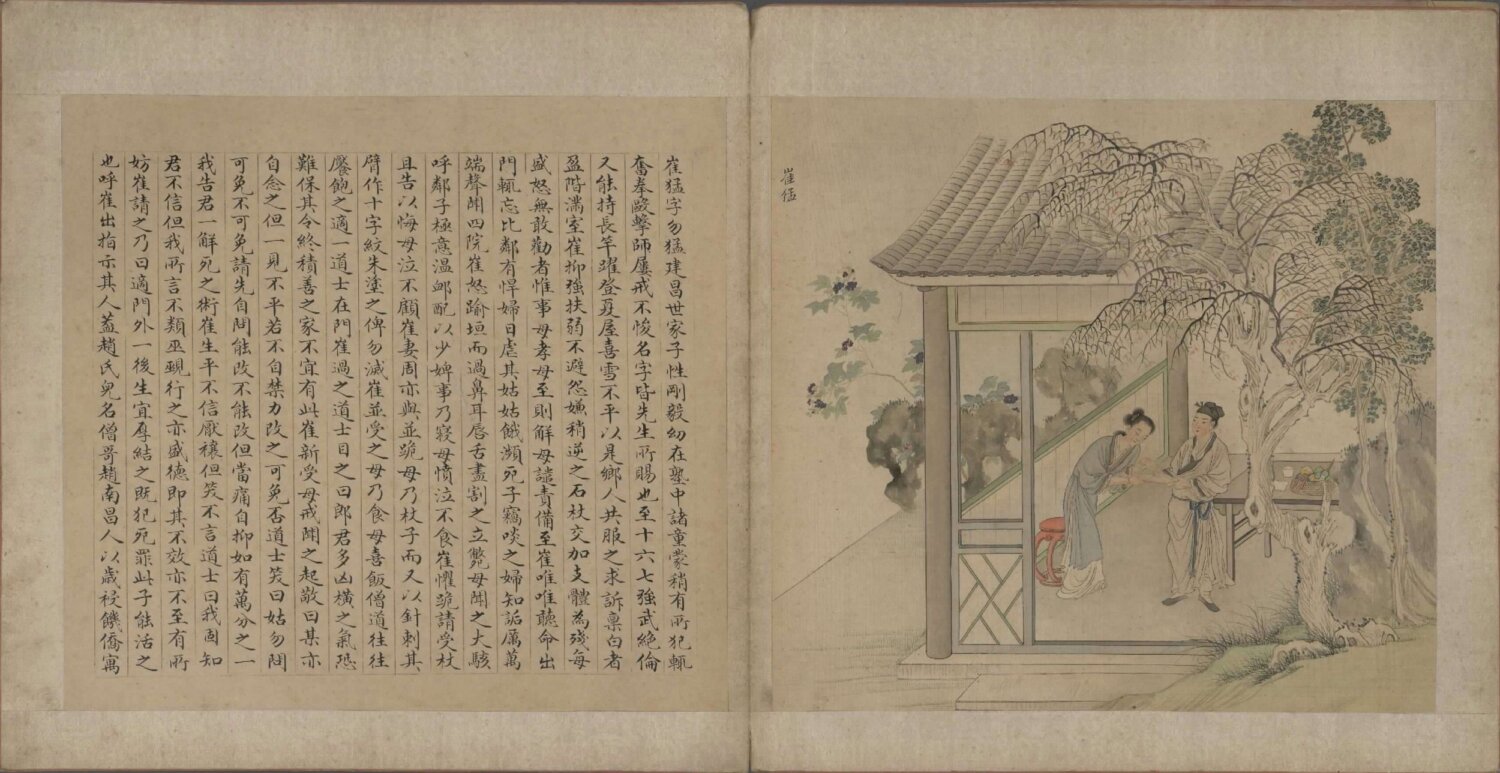 崔猛
崔猛字勿猛建昌世家子性剛毅幼在塾中諸童蒙稍有所犯輒
奮拳毆擊師屢戒不悛名字皆先生所賜也至十六七強武絕倫
又能持長竿躍登夏屋喜雪不平以是鄉人共服之求訴稟白者
盈階滿室崔抑強扶弱不避怨嫌稍逆之石杖交加支體為殘每
盛怒無敢勸者惟事母孝母至則解母譴責備至崔唯唯聽命出
門輒忘比鄰有悍婦日虐其姑姑餓瀕死子竊啖之婦知詬厲萬
端聲聞四院崔怒踰垣而過鼻耳唇舌盡割之立斃母聞之大駭
呼鄰子極意溫卹配以少婢事乃寢母憤泣不食崔懼跪請受杖
且告以悔母泣不顧崔妻周亦與並跪母乃杖子而又以針刺其
臂作十字紋朱塗之俾勿滅崔並受之母乃食母喜飯僧道往往
饜飽之適一道士在門崔過之道士目之曰郎君多凶橫之氣恐
難保其令終積善之家不宜有此崔新受母戒聞之起敬曰某亦
自念之但一見不平若不自禁力改之可免否道士笑曰姑勿問
可免不可免請先自問能改不能改但當痛自抑如有萬分之一
我告君一解死之術崔生平不信厭禳但笑不言道士曰我固知
君不信但我所言不類巫覡行之亦盛德即其不效亦不至有所
妨崔請之乃曰適門外一後生宜厚結之既犯死罪此子能活之
也呼崔出指示其人蓋趙氏兒名僧哥趙南昌人以歲祲饑僑寓